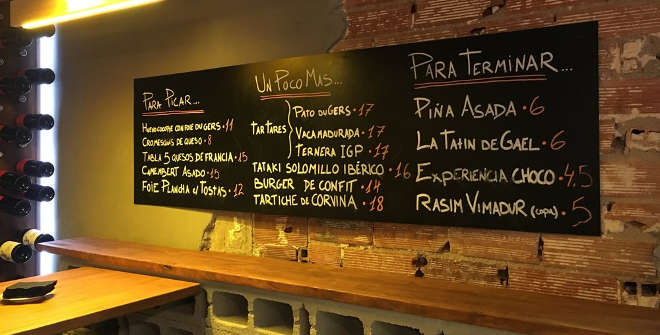 PARA PICAR...
HUEVO COOPPE CON FOIE DU GERS · 11
CROMESQUIS DE QUESO · 8
TABLA 5 QUESOS DE FRANCIA · 15
CAMEMBERT ASADO · 15
FOIE PLANCHA c/ TOSTAS · 12
UN POCO MAS...
TARTARES
PATO DU GERS · 17
VACA MADURADA · 17
TERNERA IGP · 17
TATAKI SOLOMILLO IBÉRICO · 16
BURGER DE CONFIT · 14
TARTICHE DE CORVINA · 18
PARA TERMINAR...
PIÑA ASADA · 6
LA TATIN DE GAEL · 6
EXPERIENCIA CHOCO · 4,5
RASIM VIMADUR (copa) · 5